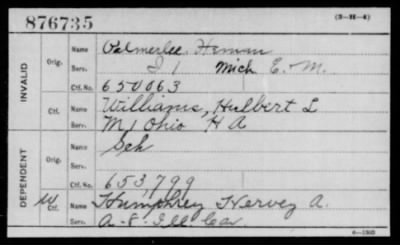 876735 (3-21-4)
INVALID
Orig. Name Palmerlee, Heman
Serv. I 1 Mich E. M.
Ctf. No. 650063
Ctf. Name Williams, Hulbert L
Serv. M 1 Ohio H A
DEPENDENT
Orig. Name Sch
Serv.
Ctf. No. 653,799
W Ctf. Name Humphrey Hervey A.
Serv. A-8-Ill. Cav.